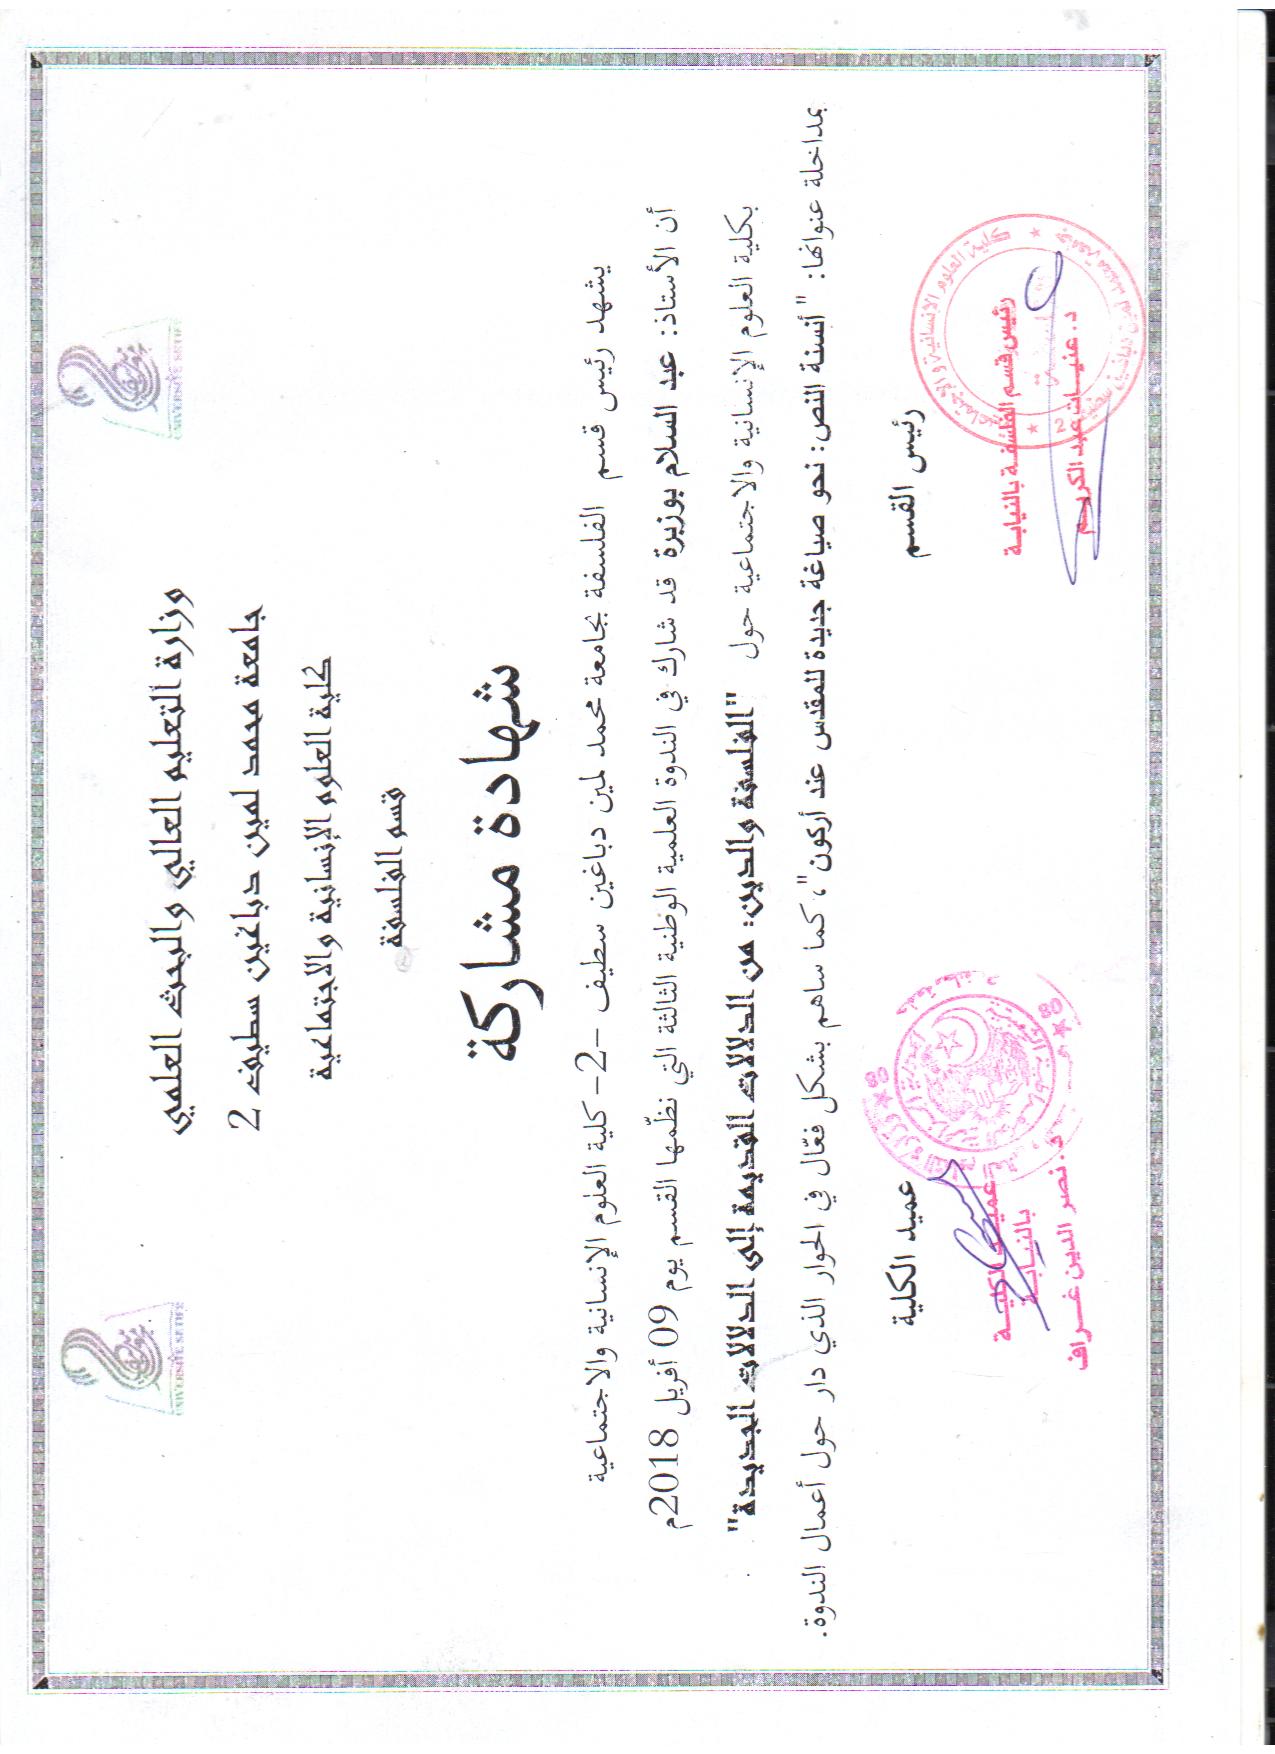 وزارة التعليم العالي والبحث العلمي
جامعة محمد لمين دباغين سطيف 2
كلية العلوم الإنسانية والاجتماعية
قسم الفلسفة
UNIVERSITE SETIF2
UNIVERSITE SETIF2
شهادة مشاركة
يشهد رئيس قسم الفلسفة بجامعة محمد لمين دباغين سطيف -2- كلية العلوم الإنسانية والاجتماعية
أن الأستاذ: عبد السلام بوزبرة قد شارك في الندوة العلمية الوطنية الثالثة التي نظّمها القسم يوم 09 أفريل 2018م
بكلية العلوم الإنسانية والاجتماعية حول "الفلسفة والدين: من الدلالات القديمة إلى الدلالات الجديدة"
بمداخلة عنوانها: "أنسنة النص: نحو صياغة جديدة للمقدس عند أركون"، كما ساهم بشكل فعّال في الحوار الذي دار حول أعمال الندوة.
رئيس القسم
عميد الكلية
كلية العلوم الإنسانية والاجتماعية
رئيس قسم الفلسفة بالنيابة
د. عنيات عبد الكريم
عميد الكلية
بالنيابة
د. نصر الدين غراف
08
08